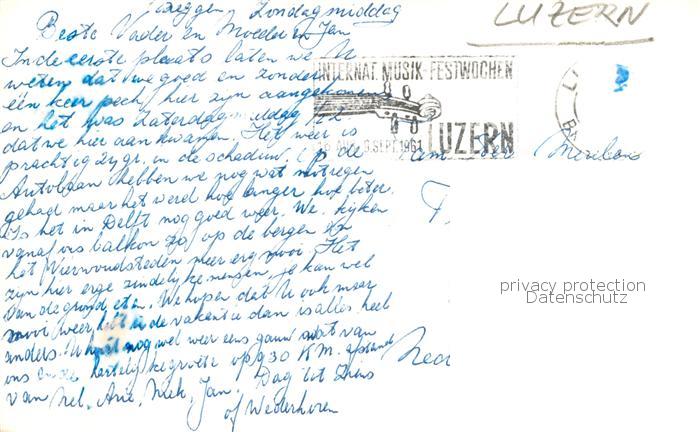 Zondagmiddag
LUZERN
Beste Vader en Moeder en Jan
In de eerste plaats laten we U
weten dat we goed en zonder
één keer pech, hier zijn aangekomen
en het was Zaterdagmiddag
dat we hier aankwamen. Het weer is
prachtig 27 gr. in de schaduw. Op de
Autobaan hebben we nog wat motregen
gehad maar het werd hoe langer hoe beter.
Is het in Delft nog goed weer. We kijken
vanaf ons balkon zo op de bergen en
het Vierwoudsteden meer erg mooi. Het
zijn hier erge zindelijke mensen, je kan wel
van de grond eten. We hopen dat U ook maar
mooi weer hebt in de vakantie dan is alles heel
anders. U hoort nog wel weer eens gauw wat van
ons en de hartelijke groeten op 930 K.M. afstand
van Nel, Arie, Niek, Jan. Dag tot Ziens
of Wederhoren
INTERNAT. MUSIK-FESTWOCHEN
LUZERN
SEPT. 1961
Fam
privacy protection
Datenschutz